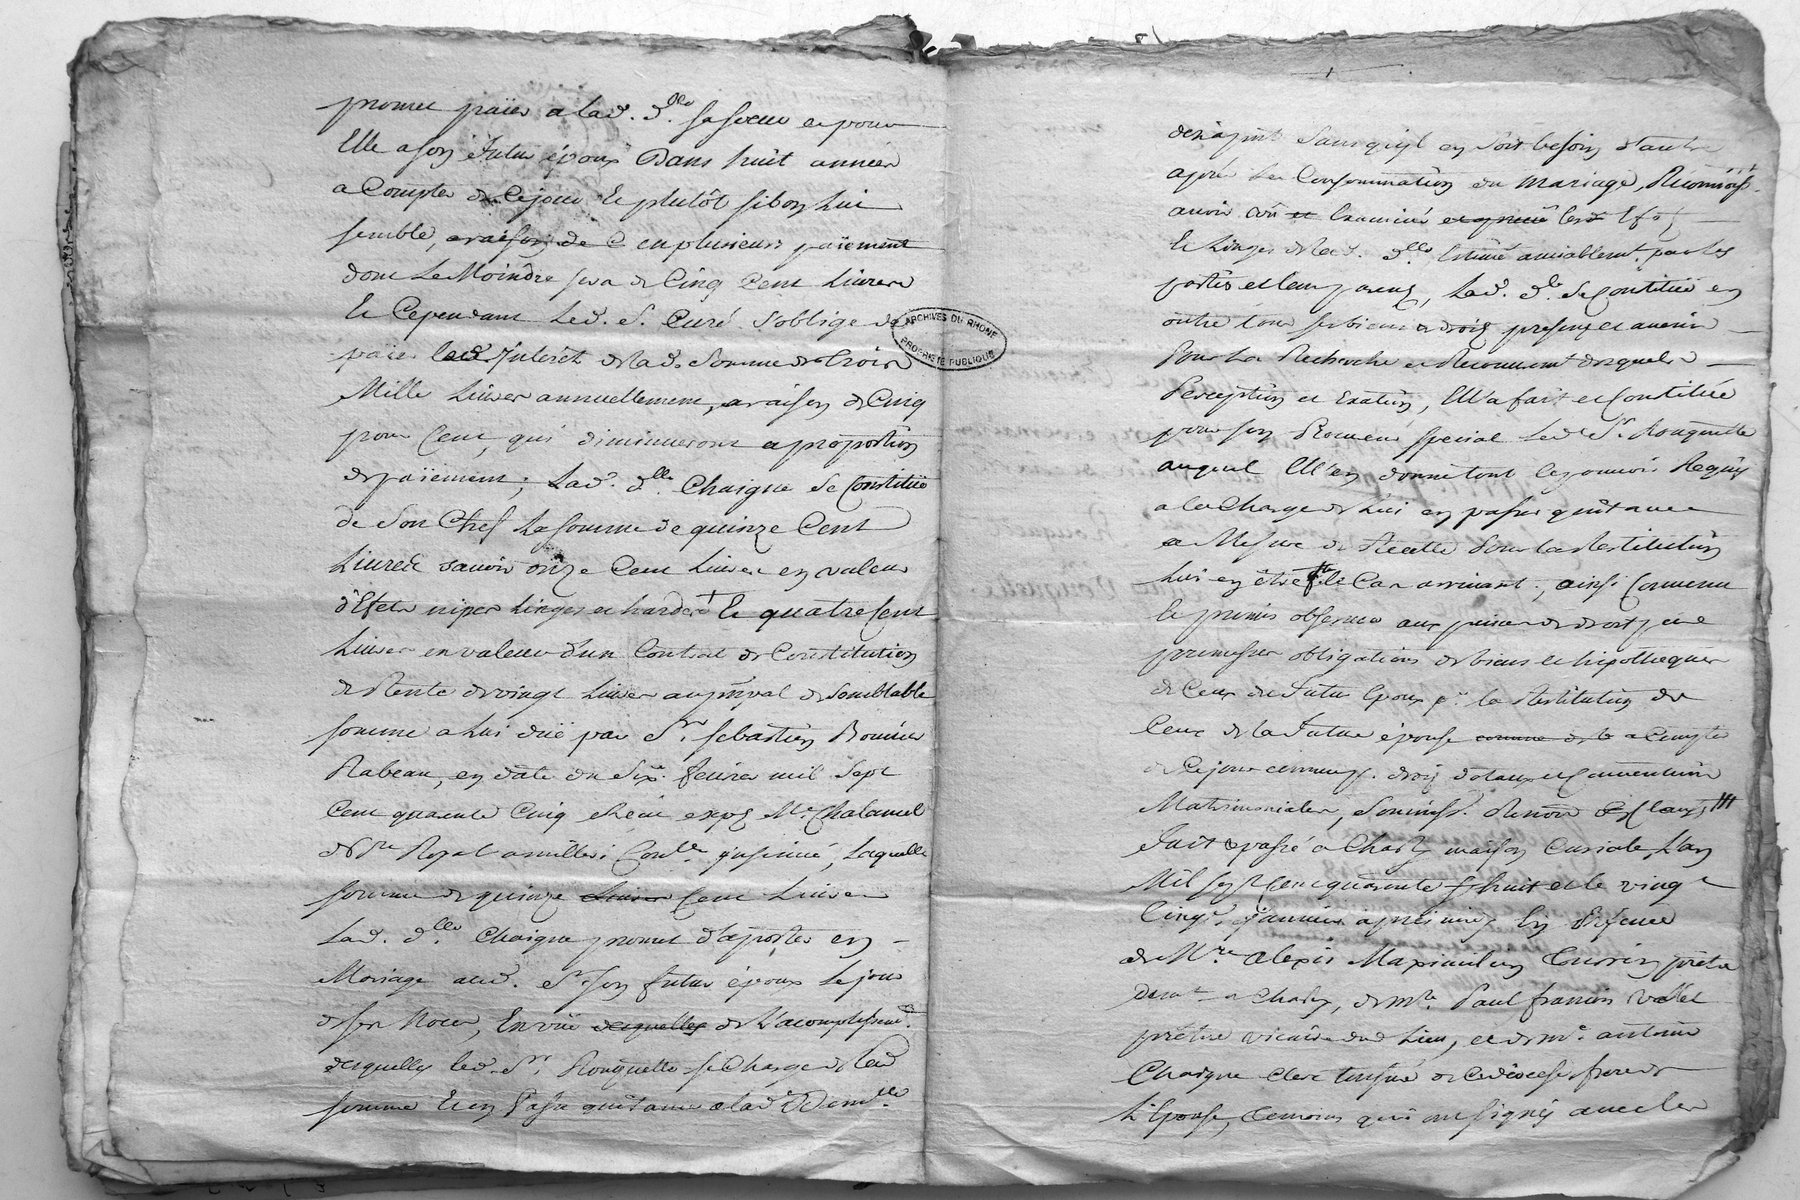 promet païer a lad. d.lle sa soeur et pour
Elle a son futur époux Dans huit années
a Compter de Cejour Et plutôt si bon Lui
semble, a raison de c en plusieurs païement
dont Le Moindre sera de Cinq Cent Livres
Et Cependant Led. S. Curé s'oblige de
païer led. Interêt de lad. Somme de trois
Mille Livres annuellement, a raison de Cinq
pour Cent, qui diminueront a proportion
des païement; Lad. d.lle Chaigne se Constitüe
de Son Chef La somme de quinze Cent
Livres savoir onze Cent Livres en valeur
d'Efets nipes Linges et hardes + Et quatre Cent
Livres en valeur d'un Contrat de Constitution
de Rente de vingt Livres au p̃npal de semblable
somme a Lui düe par Sr. Sebastien Bonnier
Rabeau, en date du Six. fevrier mil sept
Cent quarente Cinq reçu Me. Chalamel
Nre Royal insinué, Laquelle
somme de quinze Livres Cent Livres
Lad. d.lle Chaigne promet d'aporter en
Mariage aud. Sr. son futur époux Le jour
de ses Noces, En vüe desquelles de L'acomplissemt.
desquelles led. Sr. Rouquette se Charge de lad
somme Et en Passe quittance a lad. Demlle
ARCHIVES DU RHONE
PROPRIETE PUBLIQUE
sans quijl en soit besoin d'autre
après La Consommation du Mariage, Reconnoiss.
avoir vûs et Examiné
Et Linges de lad. d.lle Estimé amiablemt. par les
parties et leurs parens, Lad. d.lle se Constitüe en
outre tous ses biens et droits presens et avenir
Pour La Recherche et Recouvrement desquels
Perception et Exaction, Elle a fait et Constitüé
pour son Procureur special Led. Sr. Rouquette
auquel Elle en donne tout les pouvoir Requis
a la Charge de Lui en passer quittance
a Mesure de Recette Pour La Restitution
Lui en être fte. le Cas arrivant; ainsi Convenu
Et promis observer aux peines de droit par
promesses obligations de biens et hipotheques
de Ceux du Futur Epoux p.r la Restitution de
Ceux de la Future épouse comme de a Compter
de Cejour droits dotaux et Conventions
Matrimoniales, Soumiss. Renon. & Claus.
Fait & passé a maison Curiale, L'an
Mil sept Cent quarente huit et le vingt
Cinq. janvier après midy En Présence
de Mre. Alexis Maximilien prêtre
demt. a de Mre. Paul francois Vallet
prêtre vicaire dud. Lieu, et de Me. antoine
Chaigne Clerc tonsuré de Cediocese frere de
L'Epouse, temoins qui ont signés avec les